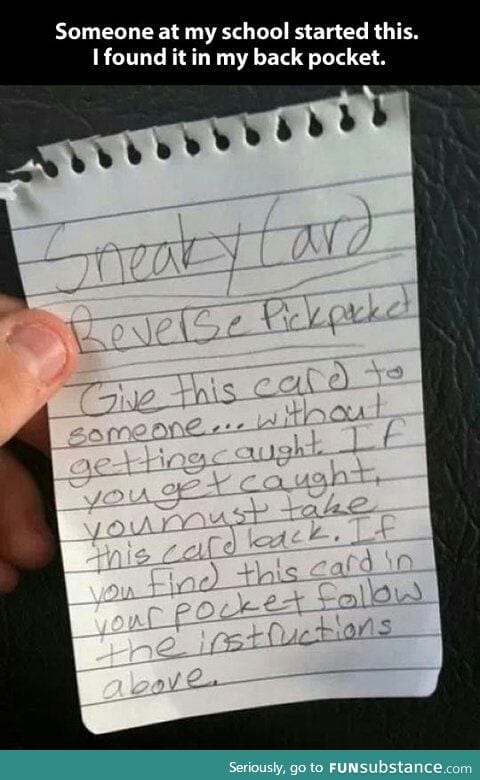 Someone at my school started this.
I found it in my back pocket.
Sneaky Card
Reverse Pickpocket
Give this card to
someone... without
getting caught. If
you get caught,
you must take
this card back. If
you find this card in
your pocket follow
the instructions
above.
Seriously, go to FUNsubstance.com